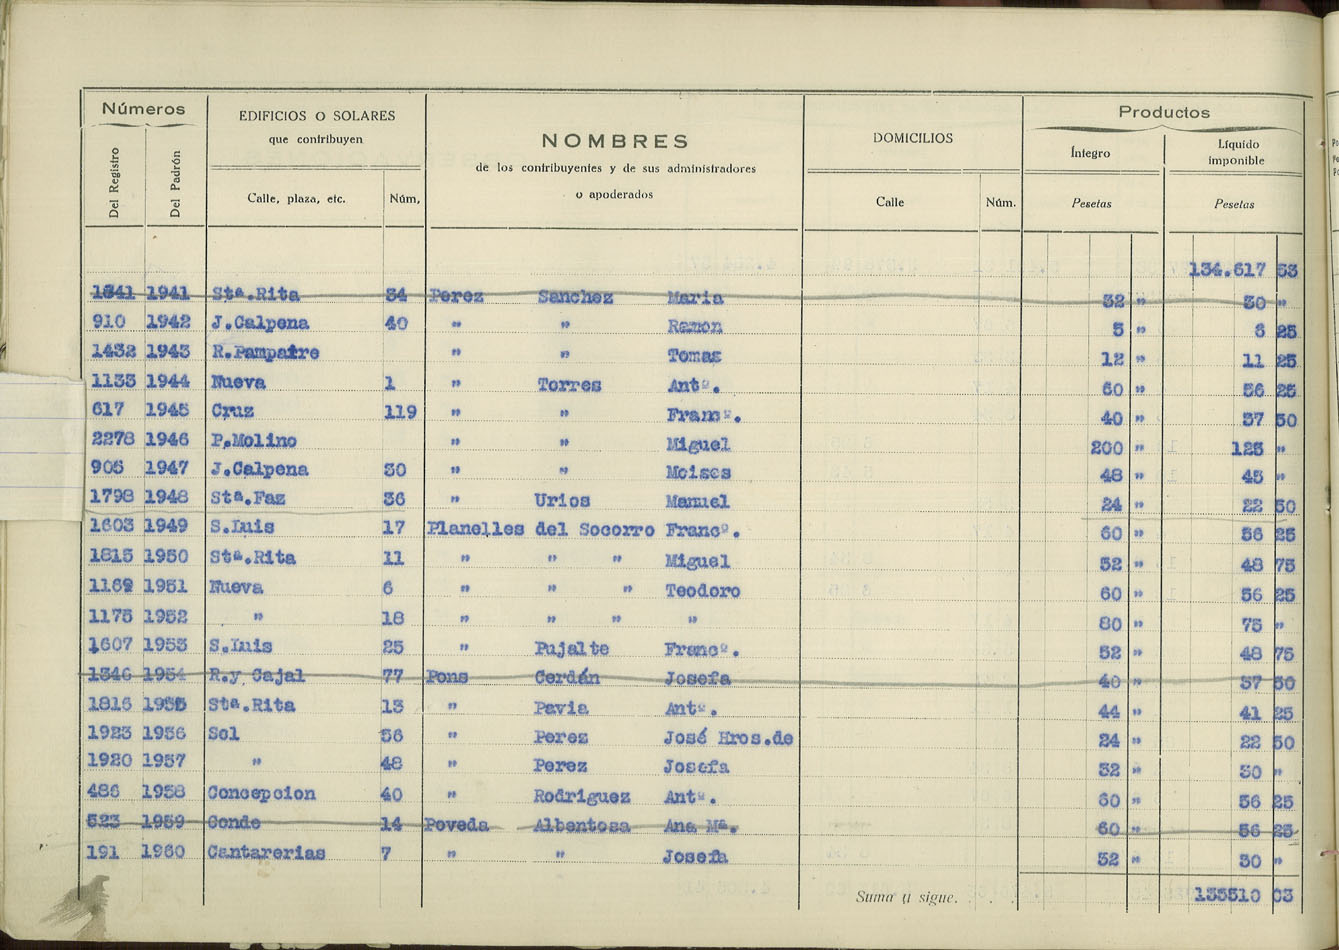 Números
EDIFICIOS O SOLARES
que contribuyen
NOMBRES
de los contribuyentes y de sus administradores
o apoderados
DOMICILIOS
Productos
Del Registro
Del Padrón
Calle, plaza, etc.
Núm,
Calle
Núm.
Íntegro
Líquido imponible
Pesetas
Pesetas
134.617 53
1841 1941 Stª.Rita 34 Perez Sanchez Maria 32 " 30 "
910 1942 J.Calpena 40 " " Ramon 5 " 6 25
1432 1943 R.Pampatre " " Tomas 12 " 11 25
1133 1944 Nueva 1 " Torres Antº. 60 " 56 25
617 1945 Cruz 119 " " Franº. 40 " 37 50
2278 1946 P.Molino " " Miguel 200 " 125 "
905 1947 J.Calpena 30 " " Moises 48 " 45 "
1798 1948 Stª.Faz 36 " Urios Manuel 24 " 22 50
1603 1949 S.Luis 17 Planelles del Socorro Francº. 60 " 56 25
1815 1950 Stª.Rita 11 " " " Miguel 52 " 48 75
1162 1951 Nueva 6 " " " Teodoro 60 " 56 25
1175 1952 " 18 " " " " 80 " 75 "
1607 1953 S.Luis 25 " Pujalte Francº. 52 " 48 75
1346 1954 R.y Cajal 77 Pons Cerdán Josefa 40 " 37 50
1816 1955 Stª.Rita 13 " Pavia Antº. 44 " 41 25
1923 1956 Sol 56 " Perez José Hros.de 24 " 22 50
1920 1957 " 48 " Perez Josefa 32 " 30 "
486 1958 Concepcion 40 " Rodriguez Antº. 60 " 56 25
523 1959 Conde 14 Poveda Albentosa Ana Mª. 60 " 56 25
191 1960 Cantarerias 7 " " Josefa 32 " 30 "
Suma y sigue. 135510 03